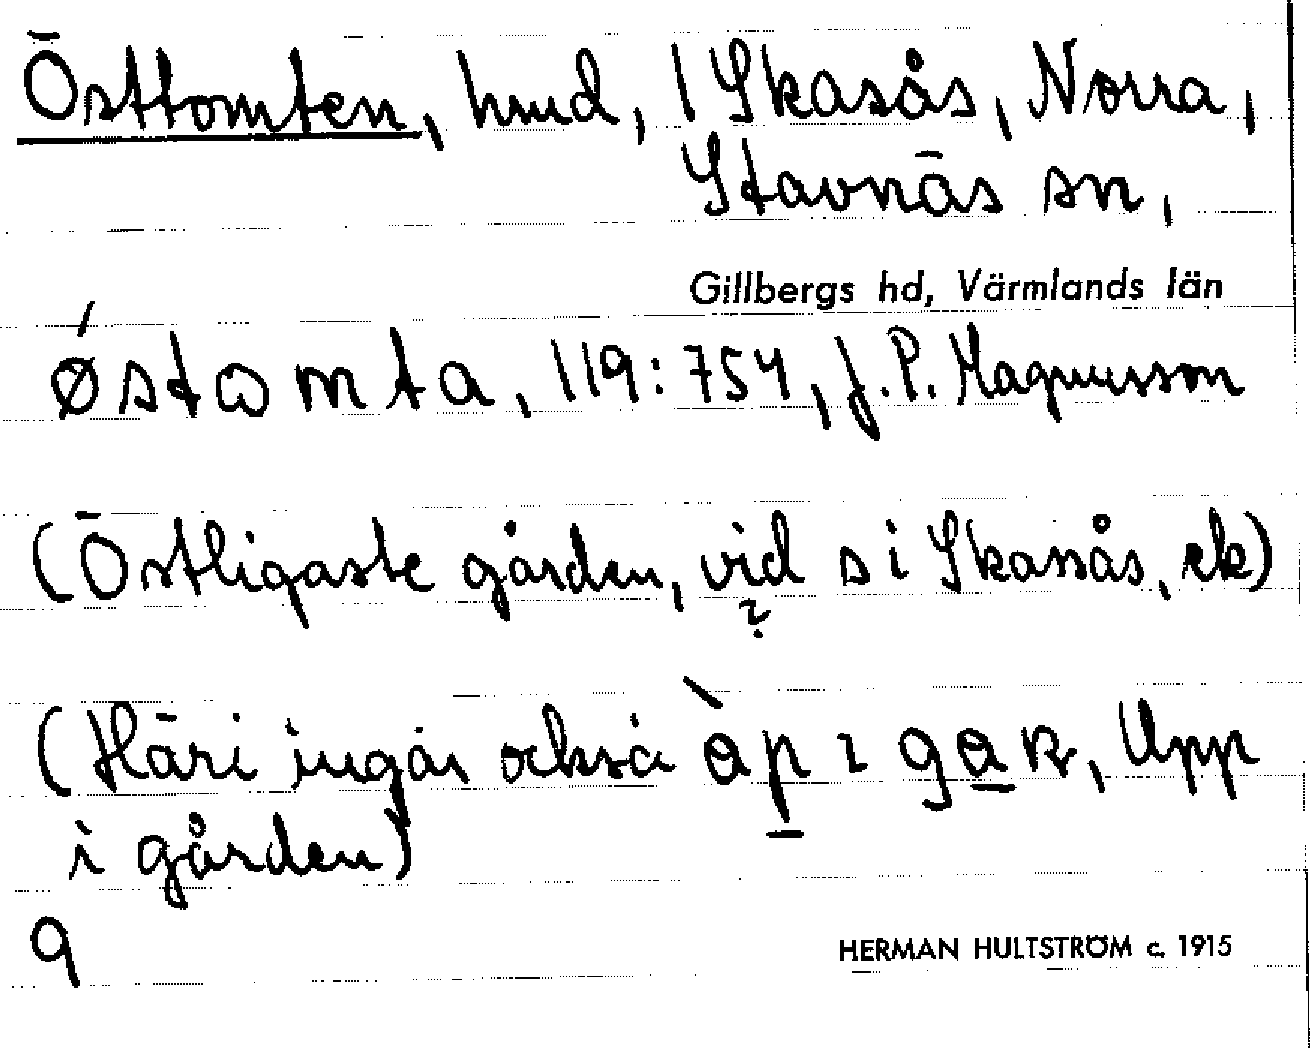 Östtomten, hmd, 1 Skasås, Norra,
Stavnäs sn,
Gillbergs hd, Värmlands län
østɷmta, 119:754, J.P. Magnusson
(Östligaste gården, vid s i Skasås, ek)
?
(Häri ingår också àpɩgaʀ, Upp
i gården)
9
HERMAN HULTSTRÖM c. 1915